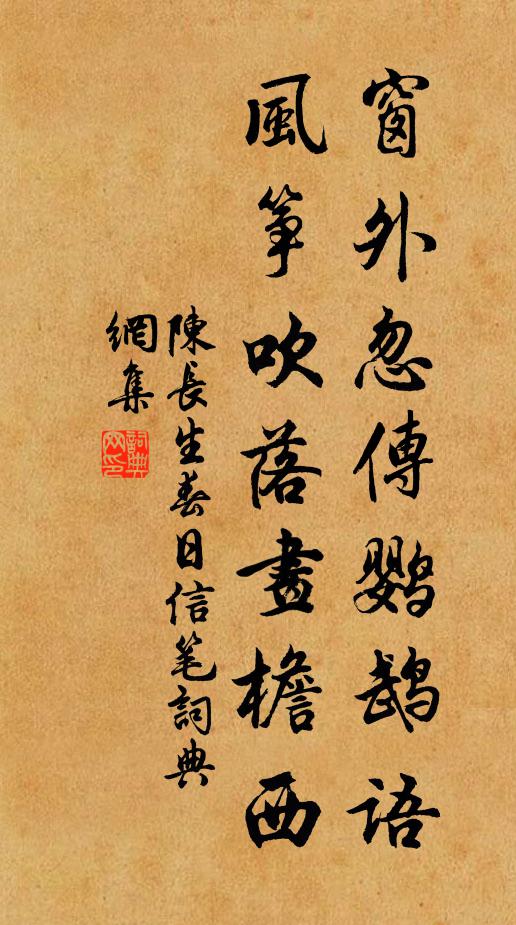 窗外忽傳鸚鵡语
風筝吹落畫檐西
陳長生春日信笔詞典
網集
詞典
网印